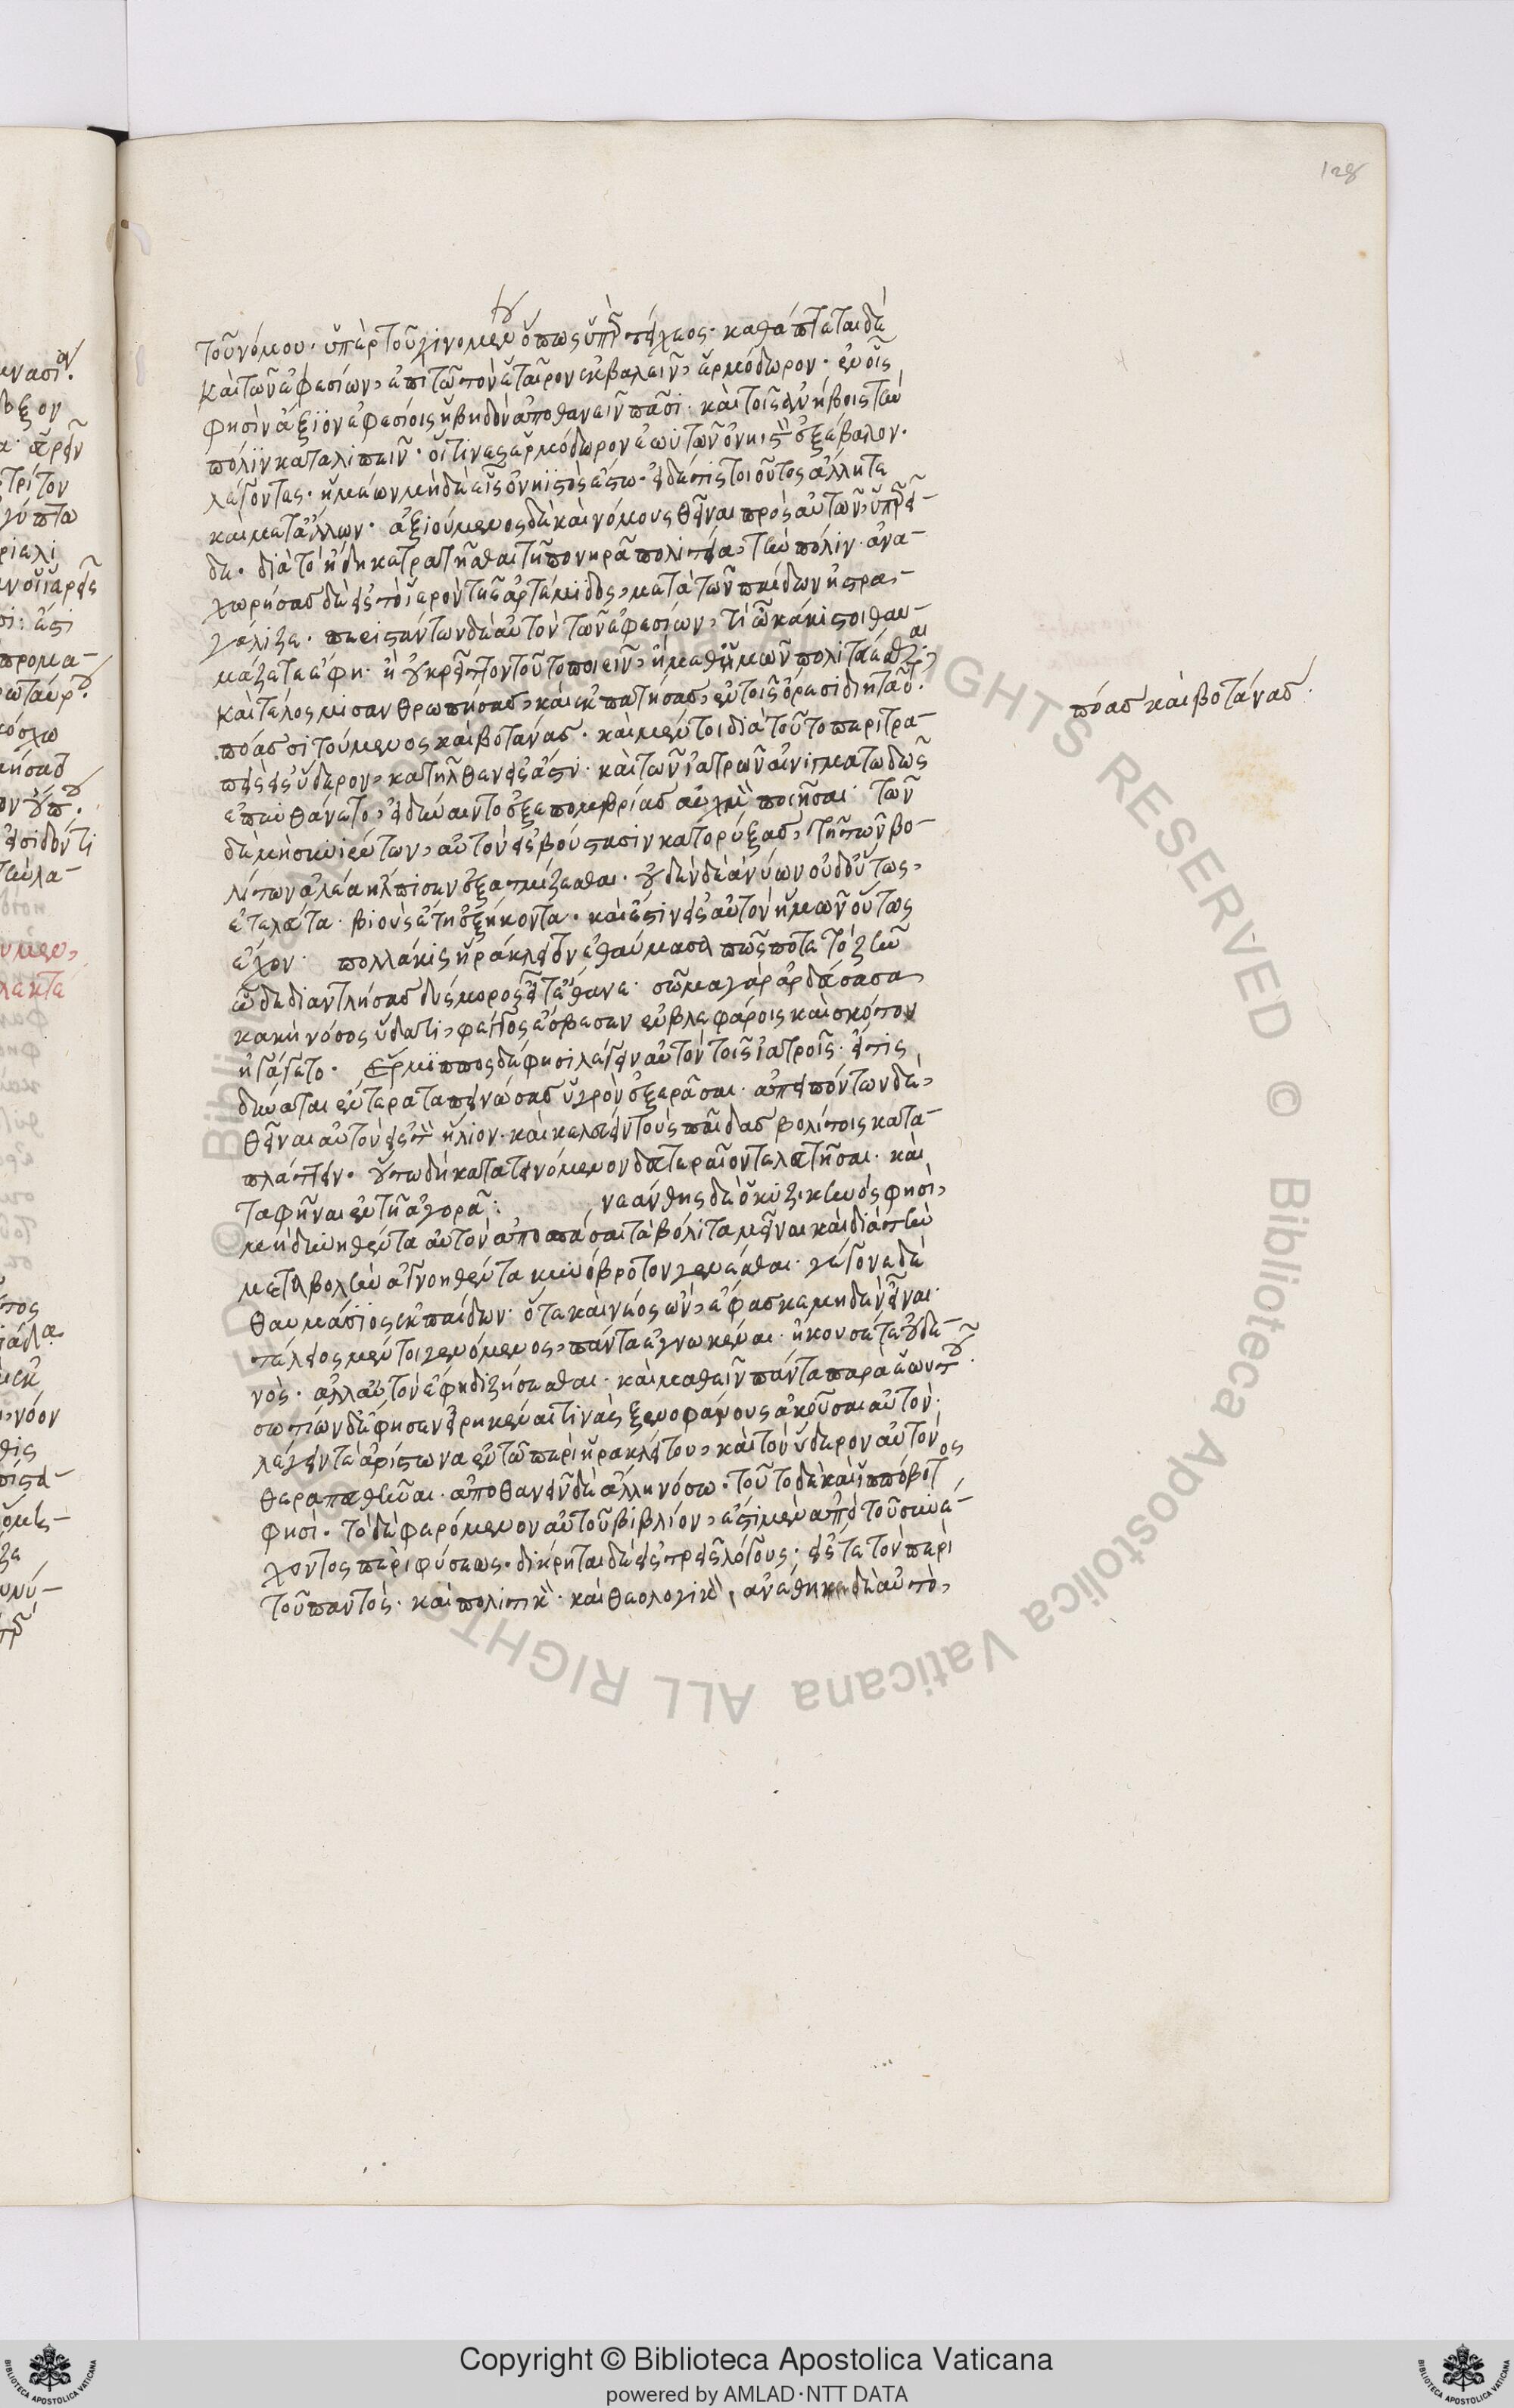 128
τοῦ νόμου· ὑπὲρ τοῦ γινομένου ὅπως ὑπὲρ τείχεος· καθάπτεται δὲ
καὶ τῶν ἐφεσίων, ἐπὶ τῶ τὸν ἑταῖρον ἐκβαλεῖν, ἑρμόδωρον· ἐν οἷς
φησὶν ἄξιον ἐφεσίοις ἡβηδὸν ἀποθανεῖν πᾶσι· καὶ τοῖς ἀνήβοις τὴν
πόλιν καταλιπεῖν· οἵτινες ἑρμόδωρον ἑωυτῶν ὀνήιστον ἐξέβαλον·
λέγοντες· ἡμέων μηδὲ εἷς ὀνήιστος ἔστω· εἰ δέ τις τοιοῦτος ἄλλη τε
καὶ μετ' ἄλλων· ἀξιούμενος δὲ καὶ νόμους θεῖναι πρὸς αὐτῶν, ὑπερεῖ-
δε· διὰ τὸ ἤδη κεκρατῆσθαι τῇ πονηρᾶ πολιτεία, τὴν πόλιν· ἀνα-
χωρήσας δὲ εἰς τὸ ἱερὸν τῆς ἀρτέμιδος, μετὰ τῶν παίδων ἠστρα-
γάλιζε· περιστάντων δὲ αὐτὸν τῶν ἐφεσίων, τί ὦ κάκιστοι θαυ-
μάζετε ἔφη· ἢ οὐ κρεῖττον τοῦτο ποιεῖν, ἢ μεθ' ὑμῶν πολιτεύεσθαι,
καὶ τέλος μισανθρωπήσας, καὶ ἐκπατήσας, ἐν τοῖς ὄρεσι διητᾶτο·
πόας σιτούμενος καὶ βοτάνας· καὶ μέντοι διὰ τοῦτο περιτρα-
πεὶς εἰς ὕδερον, κατῆλθεν εἰς ἄστυ· καὶ τῶν ἰατρῶν αἰνιγματωδῶς
ἐπυνθάνετο, εἰ δύναιντο ἐξ ἐπομβρίας αὐχμὸν ποιῆσαι· τῶν
δὲ μὴ συνιέντων, αὐτὸν εἰς βούστασιν κατορύξας, τῇ τῶν βο-
λίτων ἀλέᾳ ἤλπισεν ἐξατμίζεσθαι· οὐδὲν δὲ ἀνύων οὐδ' οὕτως,
ἐτελεύτα· βιοὺς ἔτη ἑξήκοντα· καὶ ἔστιν εἰς αὐτὸν ἡμῶν οὕτως
ἔχον· πολλάκις ἡράκλειτον ἐθαύμασα πῶς ποτε τὸ ζῆν
ὧδε διαντλήσας δύσμορος εἶτ' ἔθανε· σῶμα γὰρ ἀρδεύσασα
κακὴ νόσος ὕδατι, φέγγος ἔσβεσεν ἐν βλεφάροις καὶ σκότον
ἠγάγετο· Ἕρμιππος δέ φησι λέγειν αὐτὸν τοῖς ἰατροῖς· εἴ τις
δύναται ἔντερα ταπεινώσας ὑγρὸν ἐξερᾶσαι· ἀπειπόντων δὲ,
θεῖναι αὐτὸν εἰς τὸν ἥλιον· καὶ κελεύειν τοὺς παῖδας βολίτοις κατα-
πλάττειν· οὕτω δὴ κατατεινόμενον δευτεραῖον τελευτῆσαι· καὶ
ταφῆναι ἐν τῇ ἀγορᾷ: νεάνθης δὲ ὁ κυζικηνός φησι,
μὴ δυνηθέντα αὐτὸν ἀποσπάσαι τὰ βόλιτα μεῖναι καὶ διὰ τὴν
μεταβολὴν ἀγνοηθέντα κυνόβροτον γενέσθαι· γέγονε δὲ
θαυμάσιος ἐκ παίδων· ὅτε καὶ νέος ὢν, ἔφασκε μηδὲν εἰδέναι·
τέλειος μέντοι γενόμενος, πάντα ἐγνωκέναι· ἤκουσέ τε οὐδε-
νὸς· ἀλλ' αὑτὸν ἔφη διζήσασθαι· καὶ μαθεῖν πάντα παρὰ ἑωυτοῦ·
σωτίων δέ φησιν εἰρηκέναι τινὰς ξενοφάνους ἀκοῦσαι αὐτόν·
λέγειν τὲ ἀρίστωνα ἐν τῶ περὶ ἡρακλείτου, καὶ τὸν ὕδερον αὐτὸν
θεραπευθῆναι· ἀποθανεῖν δὲ ἄλλη νόσω· τοῦτο δὲ καὶ ἱππόβοτος
φησὶ· τὸ δὲ φερόμενον αὐτοῦ βιβλίον, ἐστὶ μὲν ἀπὸ τοῦ συνέ-
χοντος περὶ φύσεως· διήρηται δὲ εἰς τρεῖς λόγους· εἴς τε τὸν περὶ
τοῦ παντὸς· καὶ πολιτικὸν· καὶ θεολογικὸν, ἀνέθηκε δὲ αὐτὸ,
πόας καὶ βοτάνας·
Copyright © Biblioteca Apostolica Vaticana
powered by AMLAD·NTT DATA